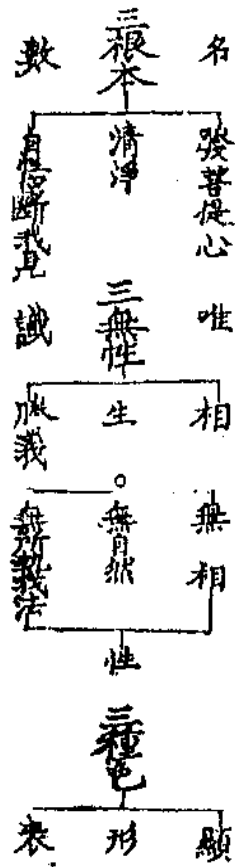 名數
三根本
發菩提心
清淨
斷我見
唯識
三無性
相
生
勝義
無相
無自然
無所執我法
性
三種色
顯
形
表